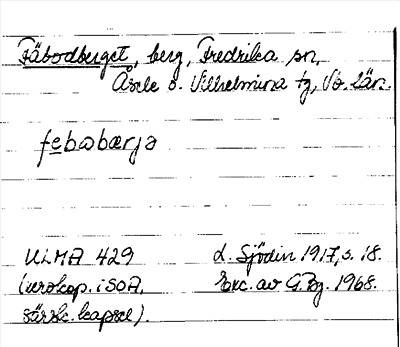 Fäbodberget, berg, Fredrika sn,
Åsele o. Vilhelmina tg, Vb. län.
febωbærja
ULMA 429 L. Sjödin 1917, s. 18.
(xerokop. i SOA, Exc. av G. Bg. 1968.
särsk. kapsel).